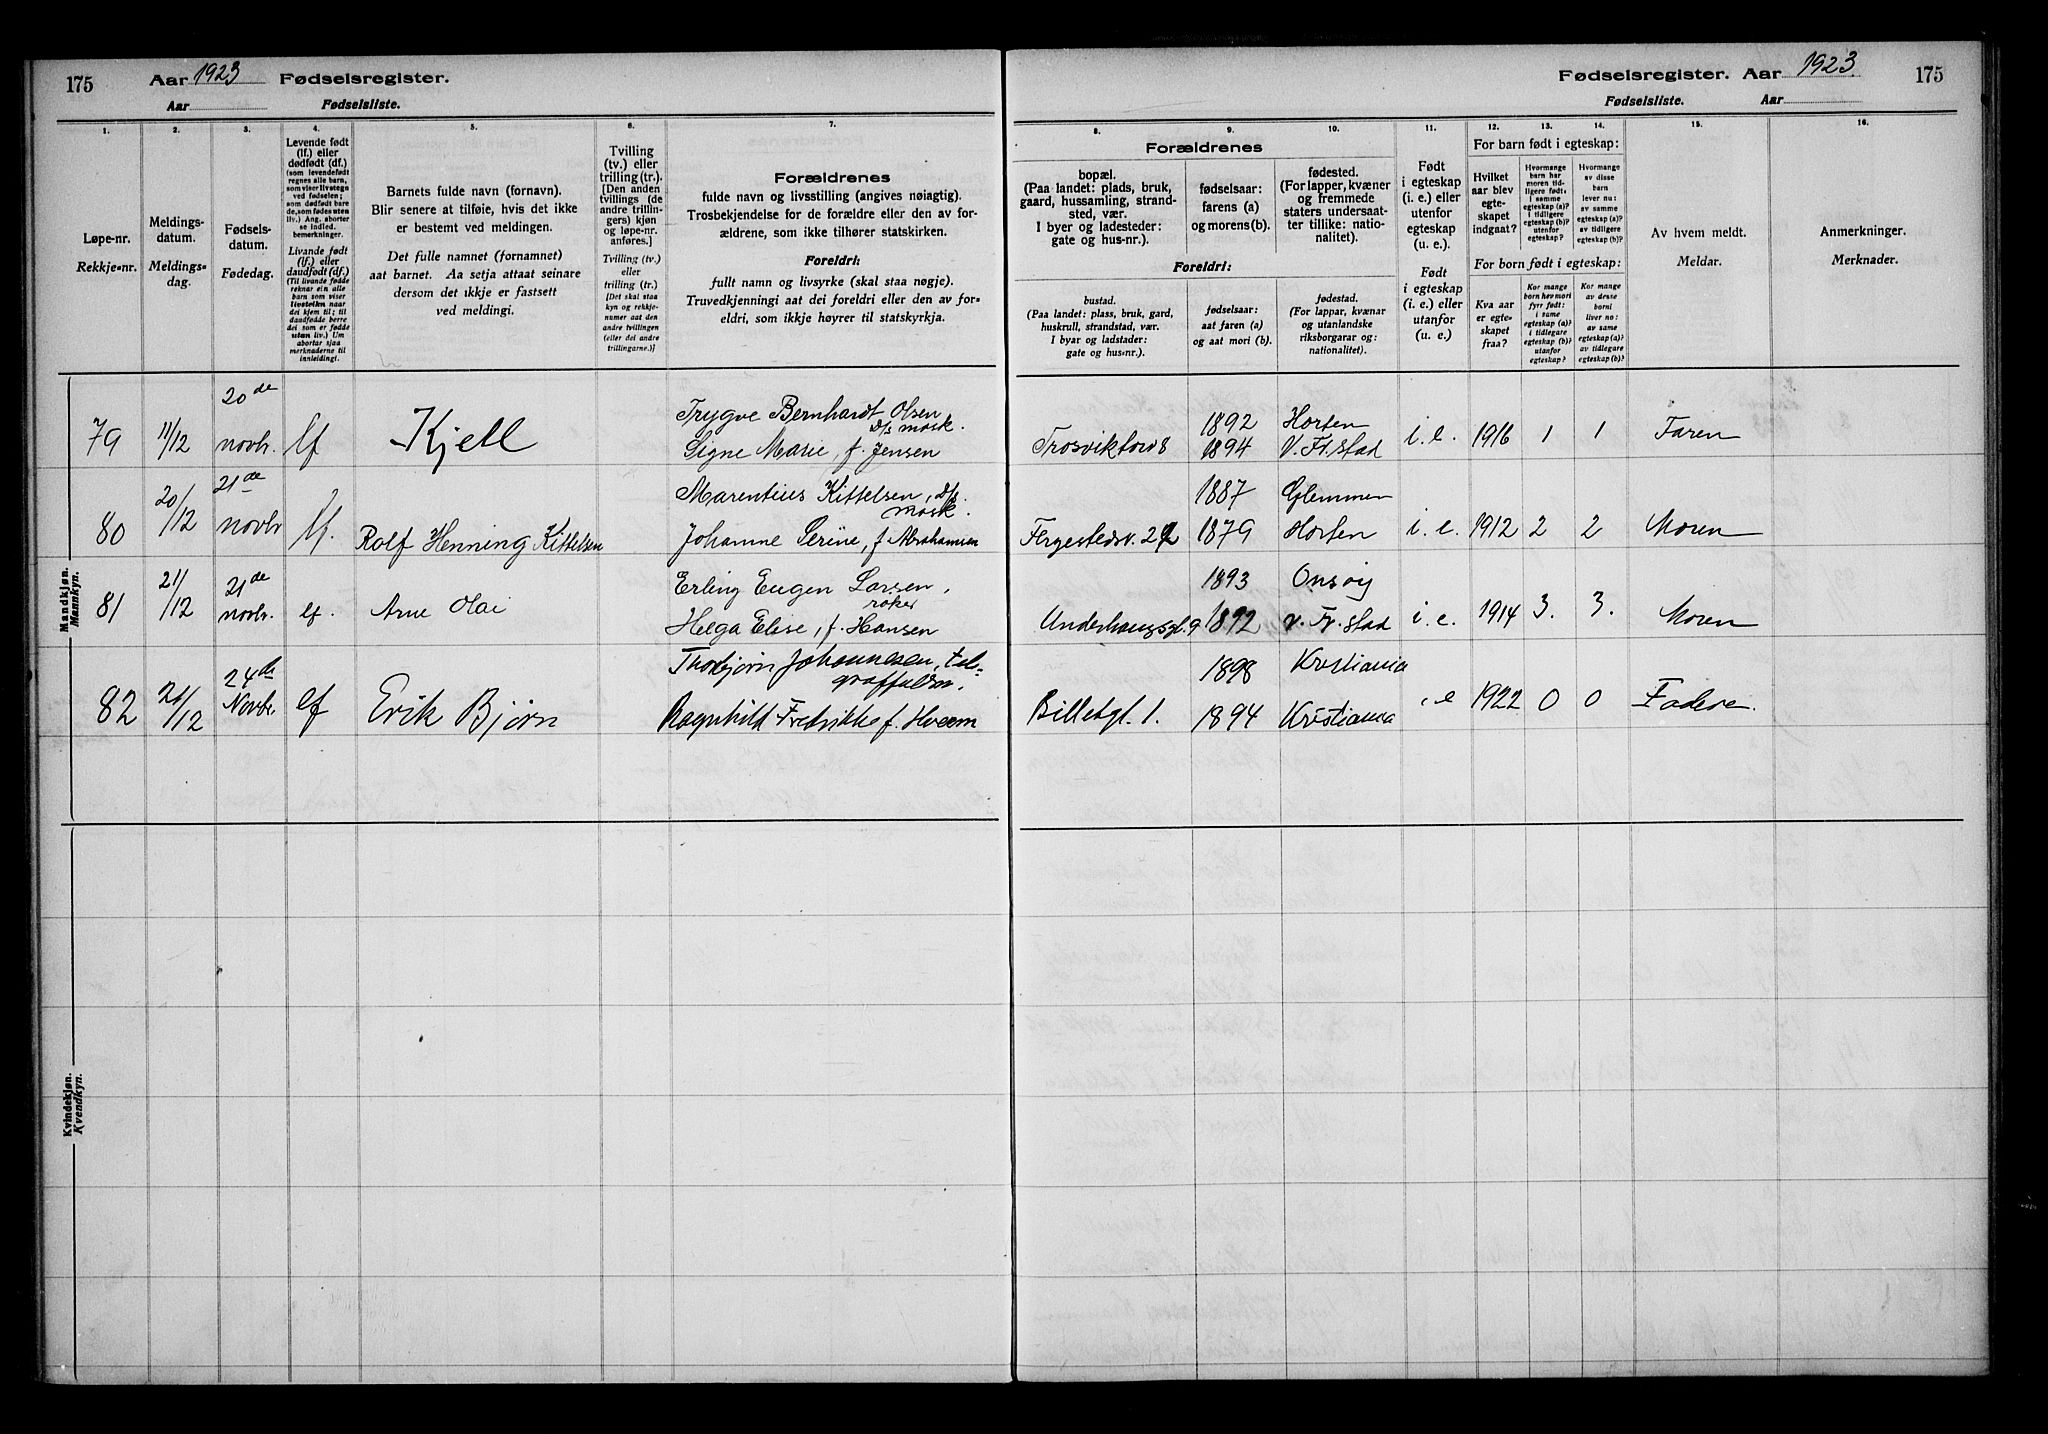 175 Aar 1923 Fødselsregister.
Aar Fødselsliste.
Fødselsregister. Aar 1923 175
Fødselsliste. Aar
1. 2. 3. 4. 5. 6. 7.
Løpe-nr.
Rekkje-nr.
Meldings-
datum.
Meldings-
dag.
Fødsels-
datum.
Fødedag.
Levende født
(lf.) eller
dødfødt (df.)
(som levendefødt
regnes alle barn,
som viser livstegn
ved fødselen;
som dødfødt bare
de, som fødes uten
liv.) Ang. aborter
se indled.
bemerkninger.
Livande født
(lf.) eller
daudfødt (df.)
(Til livande fødde
reknar ein alle
barn som viser
livsteikn naar
dei kjem til; til
daudfødde berre
dei som er fødde
utan liv.) Um
abortar sjaa
merknaderne til
innleidingi.
Barnets fulde navn (fornavn).
Blir senere at tilføie, hvis det ikke
er bestemt ved meldingen.
Det fulle namnet (fornamnet)
aat barnet. Aa setja attaat seinare
dersom det ikkje er fastsett
ved meldingi.
Tvilling
(tv.) eller
trilling (tr.).
[Den anden
tvillings (de
andre trillin-
gers) kjøn
og løpe-nr.
anføres.]
Tvilling (tv.)
eller
trilling (tr.)
[Det skal staa
kyn og rekkje-
numer aat den
andre tvillingen
(eller dei andre
trillingarne.)]
Forældrenes
fulde navn og livsstilling (angives nøiagtig).
Trosbekjendelse for de forældre eller den av for-
ældrene, som ikke tilhører statskirken.
Foreldri:
fullt namn og livsyrke (skal staa nøgje).
Truvedkjenningi aat dei foreldri eller den av for-
eldri, som ikkje høyrer til statskyrkja.
8. 9. 10. 11. 12. 13. 14. 15. 16.
Forældrenes
bopæl.
(Paa landet: plads, bruk,
gaard, hussamling, strand-
sted, vær.
I byer og ladesteder:
gate og hus-nr.).
fødselsaar:
farens (a)
og morens (b).
fødested.
(For lapper, kvæner
og fremmede
staters undersaat-
ter tillike: natio-
nalitet).
Foreldri:
bustad.
(Paa landet: plass, bruk, gard,
huskrull, strandstad, vær.
I byar og ladstader:
gate og hus-nr.).
fødselsaar:
aat faren (a)
og aat mori (b).
fødestad.
(For lappar, kvænar
og utanlandske
riksborgarar og:
nationalitet).
Født
i egteskap
(i. e.) eller
utenfor
egteskap
(u. e.).
Født
i egteskap
(i. e.) eller
utanfor
(u. e.).
For barn født i egteskap:
Hvilket
aar blev
egte-
skapet
indgaat?
Hvormange
barn har
moren tid-
ligere født:
i samme
egteskap (a)?
i tidligere
egteskap (b)?
utenfor
egteskap?
Hvormange
av disse
barn
lever nu:
av samme
egteskap (a)?
av tidligere
egteskap (b)?
For born født i egteskap:
Kva aar
er egte-
skapet
fraa?
Kor mange
born hev mori
fyrr født:
i same
egteskap (a)?
i tidlegare
egteskap (b)?
utanfor
egteskap?
Kor mange
av desse
borni
liver no:
av same
egteskap (a)?
av tidlegare
egteskap (b)?
Av hvem meldt.
Meldar.
Anmerkninger.
Merknader.
Mandkjøn.
Mannkyn.
79 11/12 20de novbr. lf Kjell
Trygve Bernhardt Olsen
d/s mask.
Signe Marie, f. Jensen
Trosvikford 8 1892 Horten i. e. 1916 1 1 Faren
1894 V. Fr.stad
80 20/12 21de novbr lf. Rolf Henning Kittelsen
Marentius Kittelsen, d/s.
mask.
Johanne Serine, f Abrahamsen
1887 Glemmen
Fergestedsv. 22 1879 Horten i. e. 1912 2 2 Moren
81 21/12 21de novbr. lf. Arne Olai
Erling Eugen Larsen,
røker
Helga Elise, f. Hansen
1893 Onsøy
Underhaugsgt. 9 1892 V. Fr. stad i. e. 1914 3. 3. Moren
82 21/12 24de Novbr. lf Erik Bjørn
Thorbjørn Johannesen, tel-
Ragnhild Fredrikke f. Hveem
1898 Kristiania
Billetgt. 1. 1894 Kristiania i e 1922 0 0 Faderen.
Kvindekjøn.
Kvendkyn.